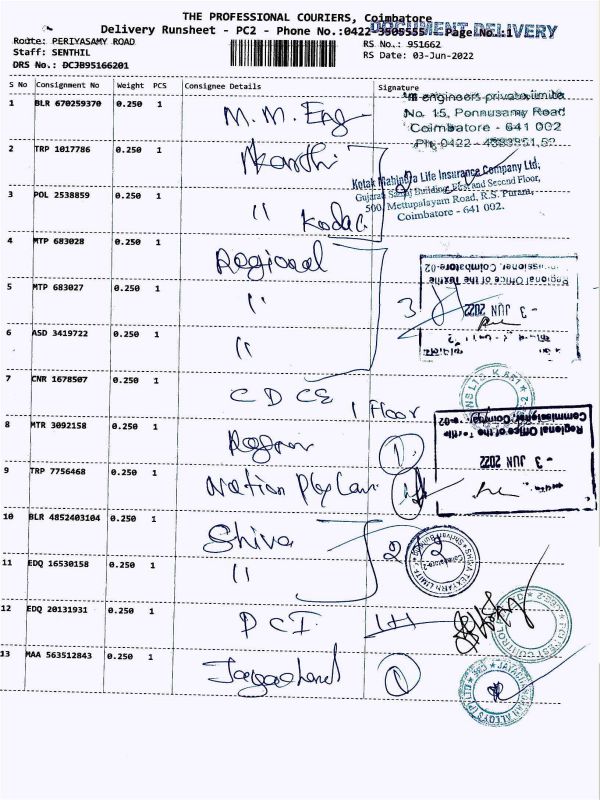 THE PROFESSIONAL COURIERS, Coimbatore
DOCUMENT DELIVERY
Delivery Runsheet - PC2 - Phone No.:0422-3505555 Page No.:1
Route: PERIYASAMY ROAD
RS No.: 951662
Staff: SENTHIL
RS Date: 03-Jun-2022
DRS No.: DCJB95166201
S No Consignment No Weight PCS Consignee Details Signature
1 BLR 670259370 0.250 1 M.M. Eng
engineers private limite
No. 15, Ponnusamy Road
Coimbatore - 641 002
Ph: 0422 -
2 TRP 1017786 0.250 1
Kotak Mahindra Life Insurance Company Ltd,
Building, First and Second Floor,
500, Mettupalayam Road, R.S. Puram,
Coimbatore - 641 002.
3 POL 2538859 0.250 1 " Kodac
4 MTP 683028 0.250 1 Regional
Regional Office of the Textile
Commissioner, Coimbatore-02
3 JUN 2022
5 MTP 683027 0.250 1 " 3
6 ASD 3419722 0.250 1 "
7 CNR 1678507 0.250 1 CDCE 1 Floor
8 MTR 3092158 0.250 1 1
Regional Office of the Textile
Commissioner, Coimbatore-02
3 JUN 2022
9 TRP 7756468 0.250 1 Nation
10 BLR 4852403104 0.250 1 Shiva 2
SHIVA TEXYARN LIMITED
Coimbatore-2
11 EDQ 16530158 0.250 1 "
12 EDQ 20131931 0.250 1 PCI
13 MAA 563512843 0.250 1 1